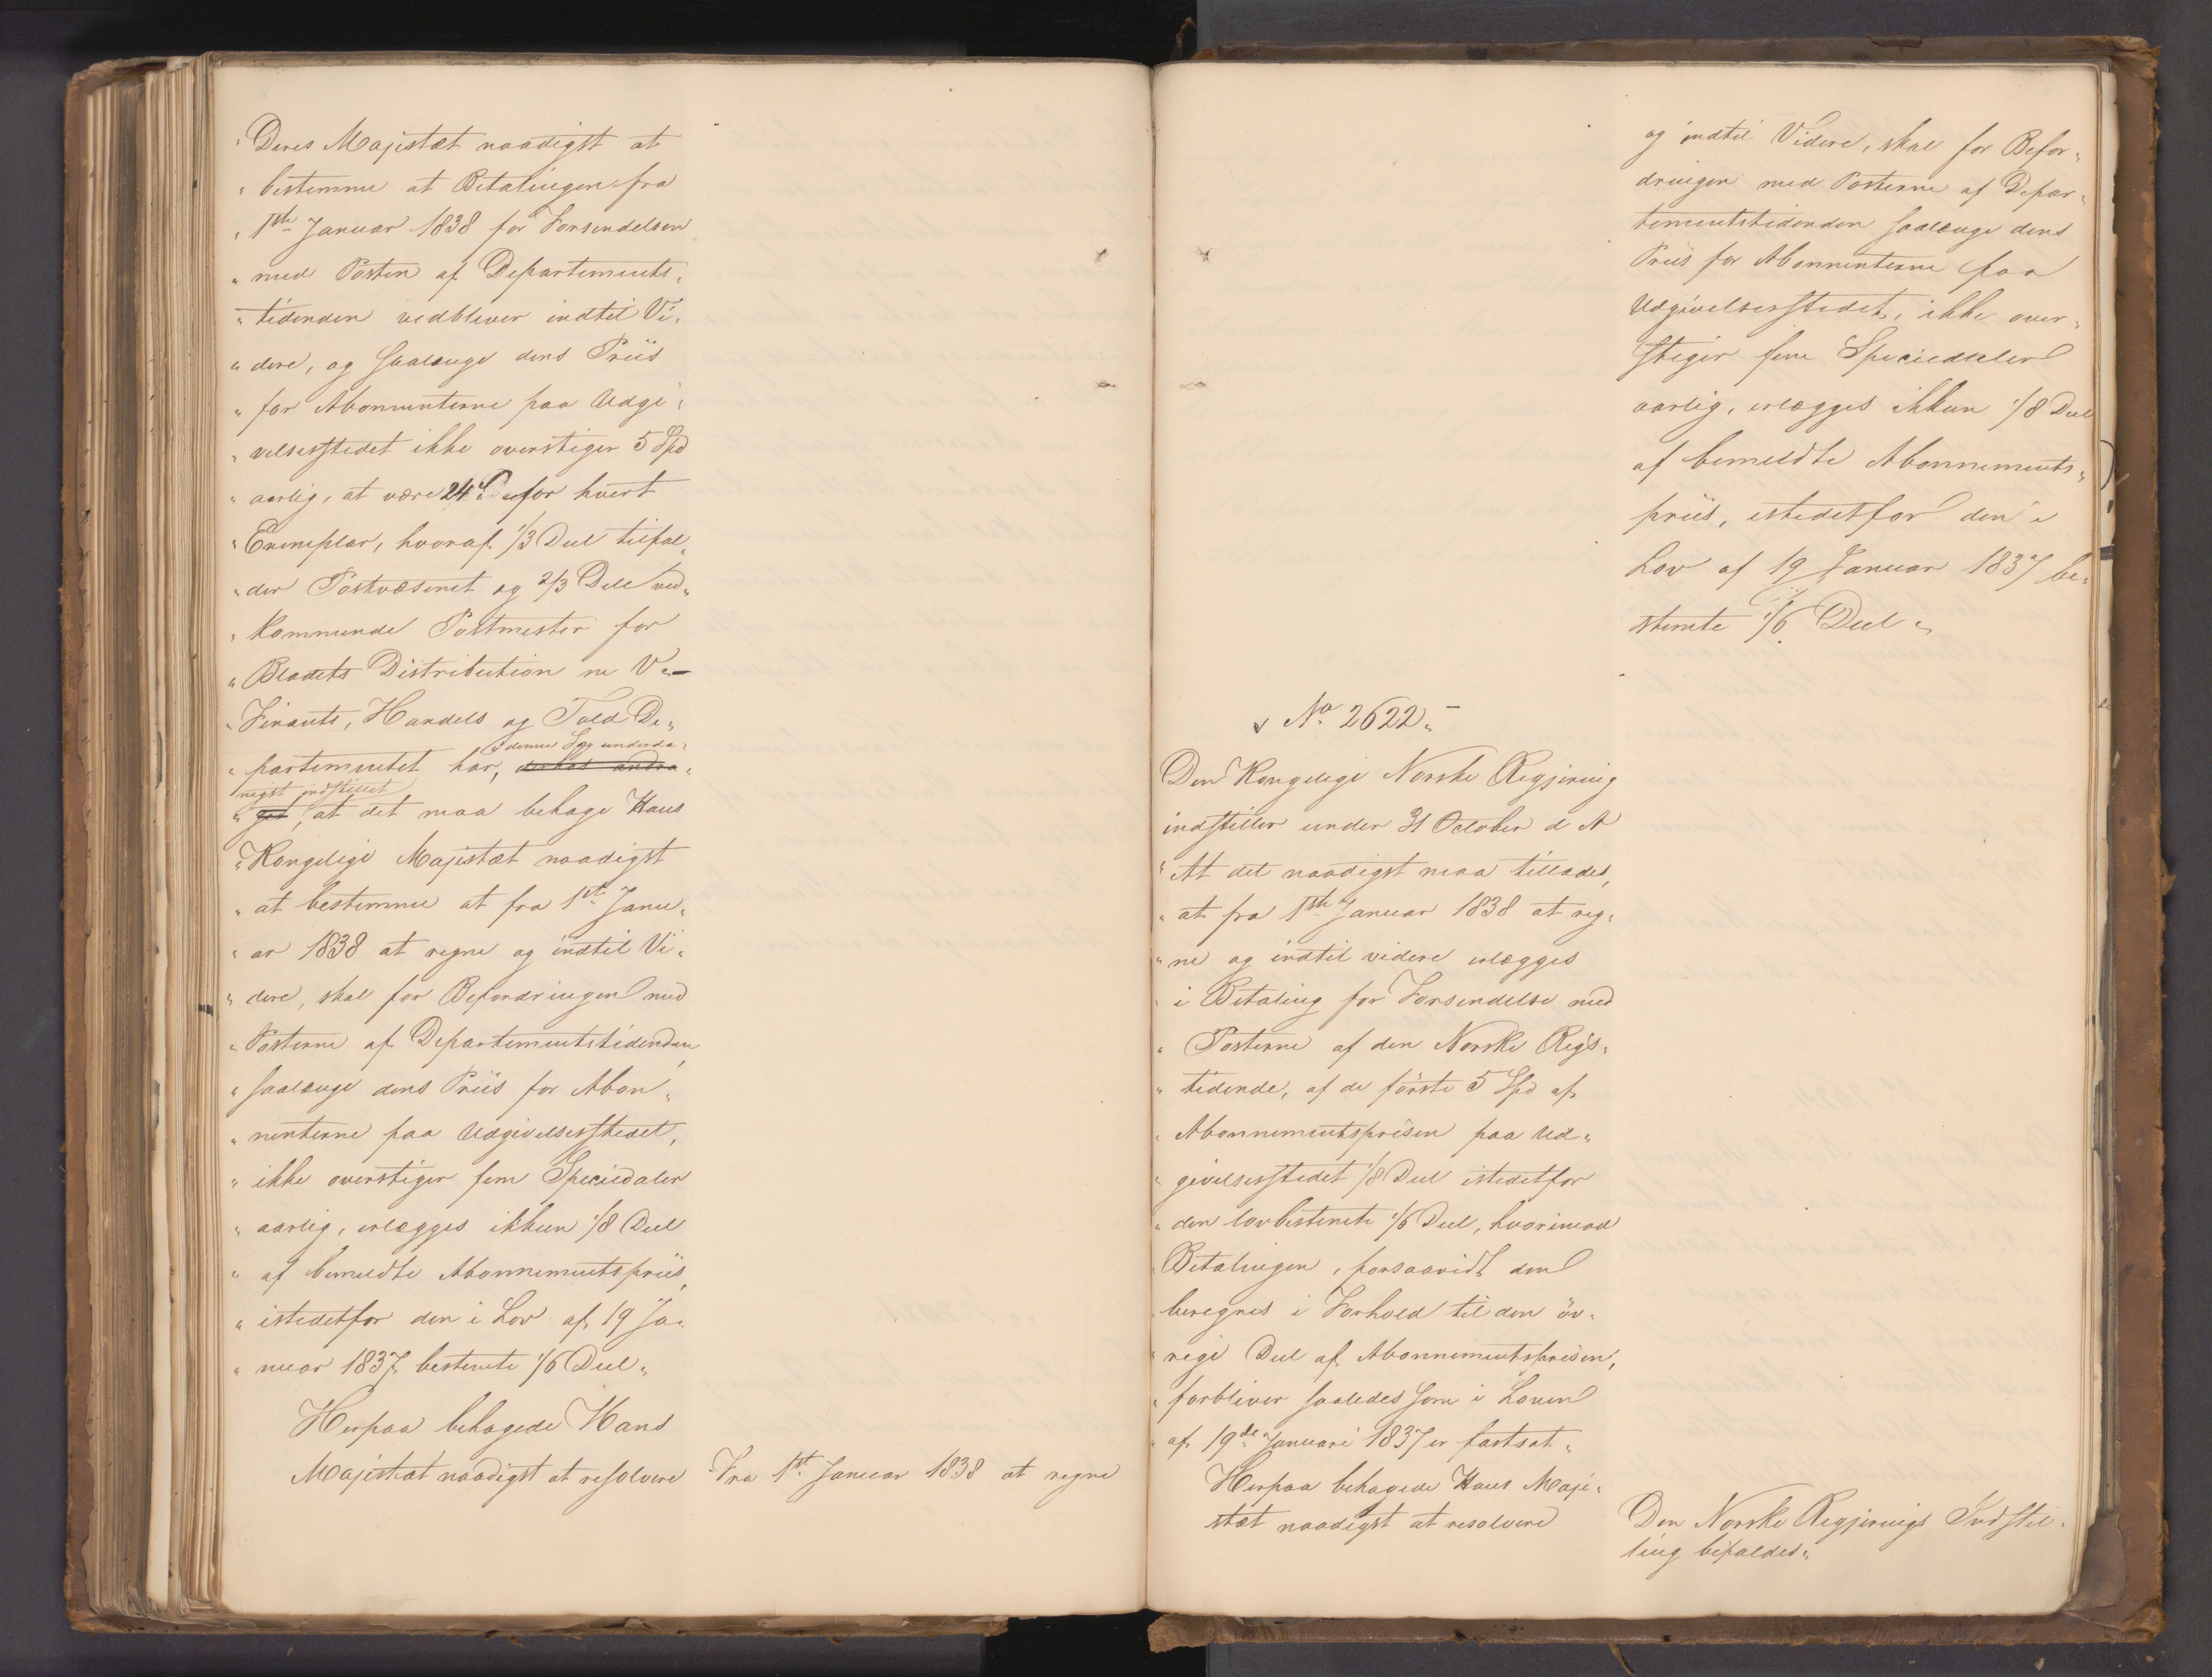 "Deres Majestæt naadigst at
" bestemme at Betalingen fra
" 1ste Januar 1838 for Forsendelsen
" med Posten af Departements-
" tidenden vedbliver indtil Vi-
" dere, og saalænge dens Priis
" for Abonnenterne paa Udgi-
" velsesstedet ikke overstiger 5 Spd
" aarlig, at være 24 for hvert
" Exemplar, hvoraf 1/3 Deel tilfal-
" der Postvæsenet og 2/3 Dele ved-
" kommende Postmester for
" Bladets Distribution m V. –
" Finants, Handels og Told De-
" partementet har, derhos andra-
denne Sag underda-
nigst indstillet
" get, at det maa behage Hans
" Kongelige Majestæt naadigst
" at bestemme at fra 1ste Janu-
" ar 1838 at regne og indtil Vi-
" dere, skal for Befordringen med
" Posterne af Departementstidenden,
" saalænge dens Priis for Abon-
" nenterne paa Udgivelsesstedet,
" ikke overstiger fem Speciedaler
" aarlig, erlægges ikkun 1/8 Deel
" af bemeldte Abonnementspriis,
" istedetfor den i Lov af 19 Ja-
" nuar 1837 bestemte 1/6 Deel"
Herpaa behagede Hans
Majestæt naadigst at resolvere
Fra 1ste Januar 1838 at regne
og indtil Videre, skal for Befor-
dringen med Posterne af Depar-
tementstidenden saalænge dens
Priis for Abonnenterne paa
Udgivelsesstedet, ikke over-
stiger fem Speciedaler
aarlig, erlægges ikkun 1/8 Deel
af bemeldte Abonnements-
priis, istedetfor den i
Lov af 19 Januar 1837 be-
stemte 1/6 Deel"
No 2622.
Den Kongelige Norske Regjering
indstiller under 31 October d A
"At det naadigst maa tillades,
" at fra 1ste Januar 1838 at reg-
" ne og indtil videre erlægges
" i Betaling for Forsendelse med
" Posterne af den Norske Rigs-
" tidende, af de förste 5 Spd af
" Abonnementsprisen paa Ud-
" givelsesstedet 1/8 Deel istedetfor
" den lovbestemte 1/6 Deel, hvorimod
" Betalingen, forsaavidt den
" beregnes i Forhold til den öv-
" rige Deel af Abonnementsprisen,
" forbliver saaledes som i Loven
" af 19de Januari 1837 er fastsat"
Herpaa behagede Hans Maje-
stæt naadigst at resolvere
Den Norske Regjerings Indstil-
ling bifaldes"